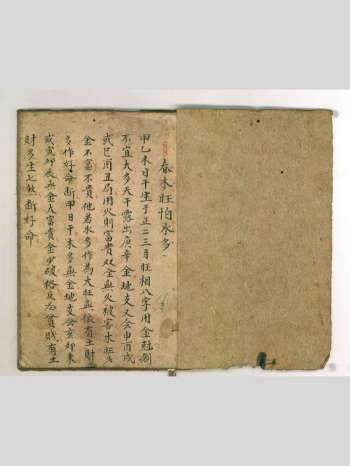 春木旺怕水多
甲乙木日干生于正二三月旺相八字用金尅制
不宜大多天干露出庚辛金地支又会申酉戌
或巳酉丑局用火則富貴双金無火被害木旺
金不富不貴他若水多作為大旺無依有土財
多作好命断甲日干木多無金地支会亥卯未
或寅卯辰無金大富貴金少破格反為貧賎有土
財多生七煞断好命